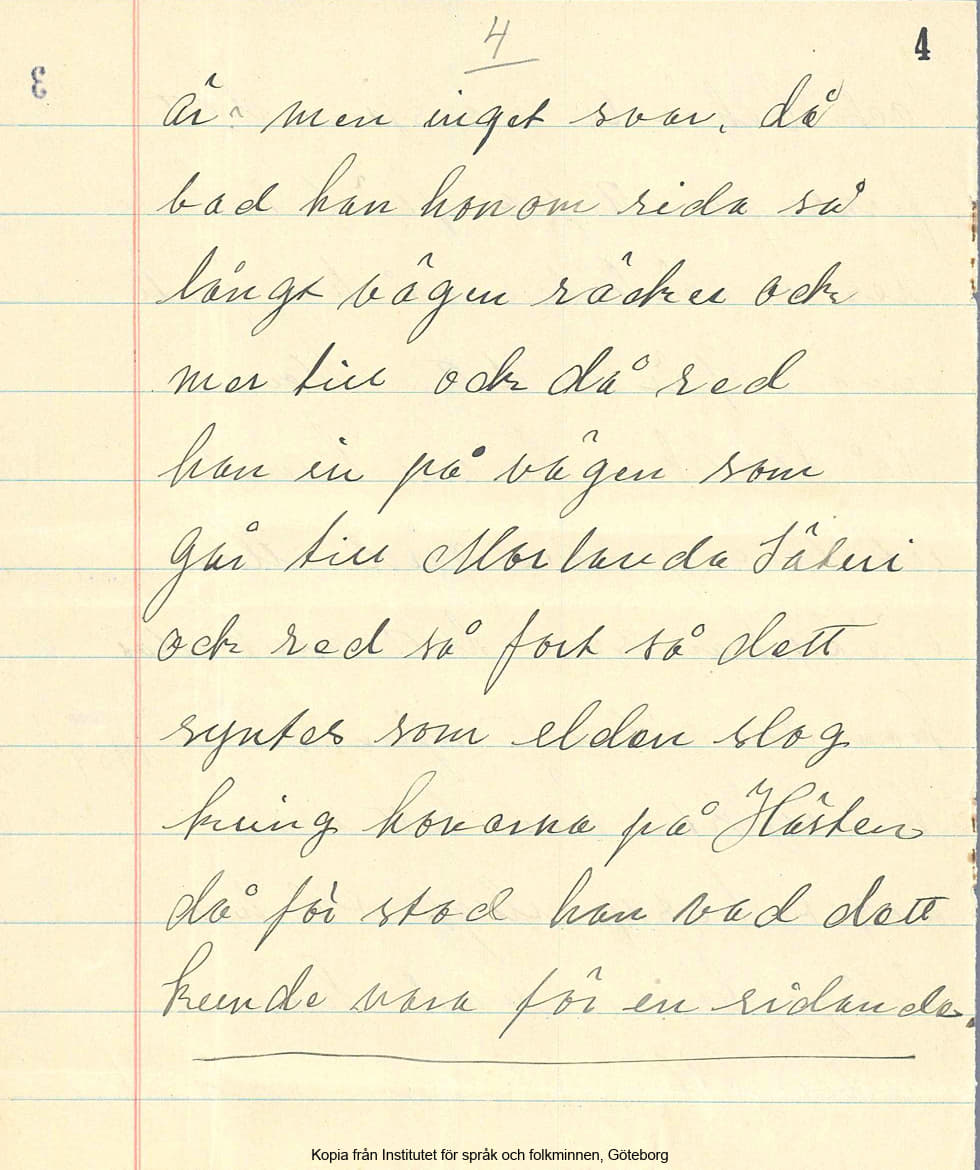 4
4
3
är men inget svar, då
bad han honom rida så
långt vägen räcker ock
mer till ock då red
han in på vägen som
går till Morlanda Säteri
ock red så fort så dett
syntes som elden slog
kring hovarna på Hästen
då för stod han vad dett
kunde vara för en ridande.
Kopia från Institutet för språk och folkminnen, Göteborg